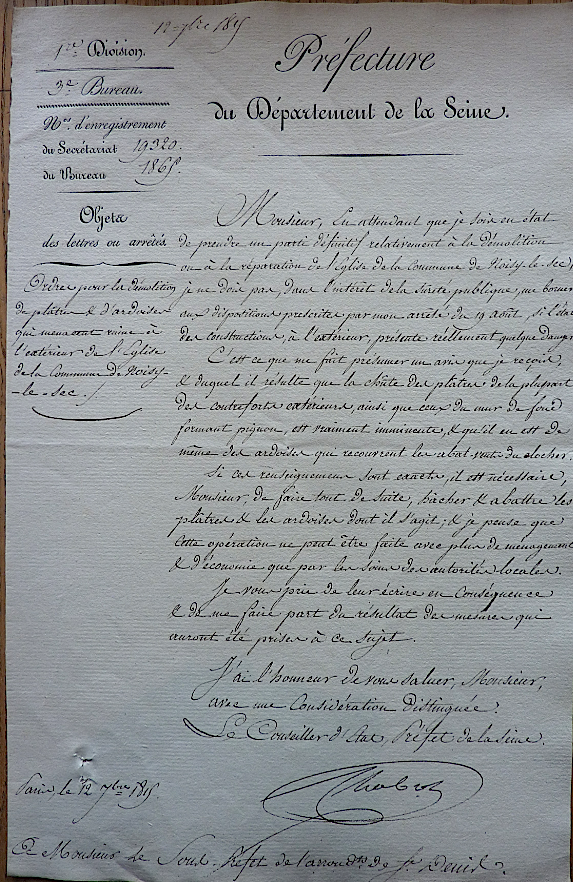 12 7bre 1815
1ere Division.
3e Bureau.
Nos. d'enregistrement
du Secrétariat 19320.
du Bureau 1865.
Objets
des lettres ou arrêtés.
Ordres pour la démolition
de plâtres & d'ardoises
qui menacent ruine à
l'extérieur de l'Eglise
de la Commune de Noisy-
-le-sec./
Préfecture
du Département de la Seine.
Monsieur, En attendant que je sois en état
de prendre un parti définitif relativement à la démolition
ou à la réparation de l'Eglise de la Commune de Noisy-le-sec,
je ne dois pas, dans l'intérêt de la sureté publique, me borner
aux dispositions prescrites par mon arrêté du 19 août, si l'état
des constructions, à l'extérieur, présente réellement quelque danger
C'est ce que me fait présumer un avis que je reçois,
& duquel il résulte que la chûte des plâtres de la plupart
des contreforts extérieurs, ainsi que ceux du mur de fond
formant pignon, est vraiment imminente, & qu'il en est de
même des ardoises qui recouvrent les abat-vents du clocher.
Si ces renseignemens sont exacts, il est nécessaire,
Monsieur, de faire tout de suite, hâcher & abattre les
plâtres & les ardoises dont il s'agit; & je pense que
cette opération ne peut être faite avec plus de ménagement
& d'économie que par les soins des autorités locales.
Je vous prie de leur écrire en conséquence
& de me faire part du résultat des mesures qui
auront été prises à ce sujet.
J'ai l'honneur de vous saluer, Monsieur,
avec une Considération distinguée.
Le Conseiller d'Etat, Préfet de la Seine.
Chabrol
Paris, le 12 7bre 1815.
A Monsieur le Sous-Préfet de l'arrondt de St Denis.